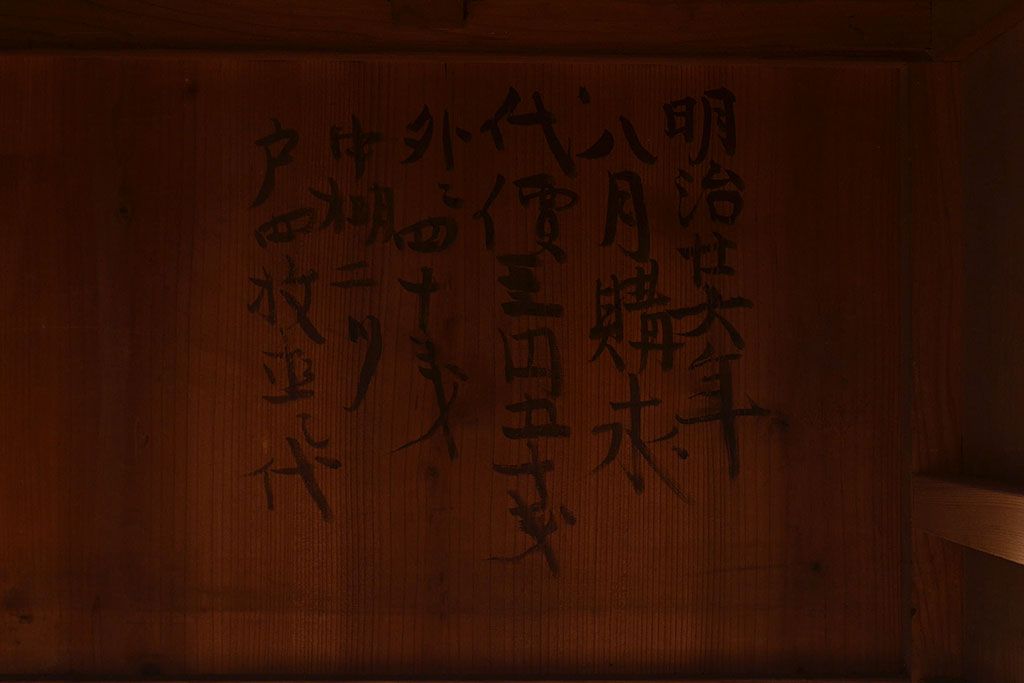 明治廿六年
八月購求
代價三円五十戋
外ニ四十戋
中棚二ツ
戸四枚代